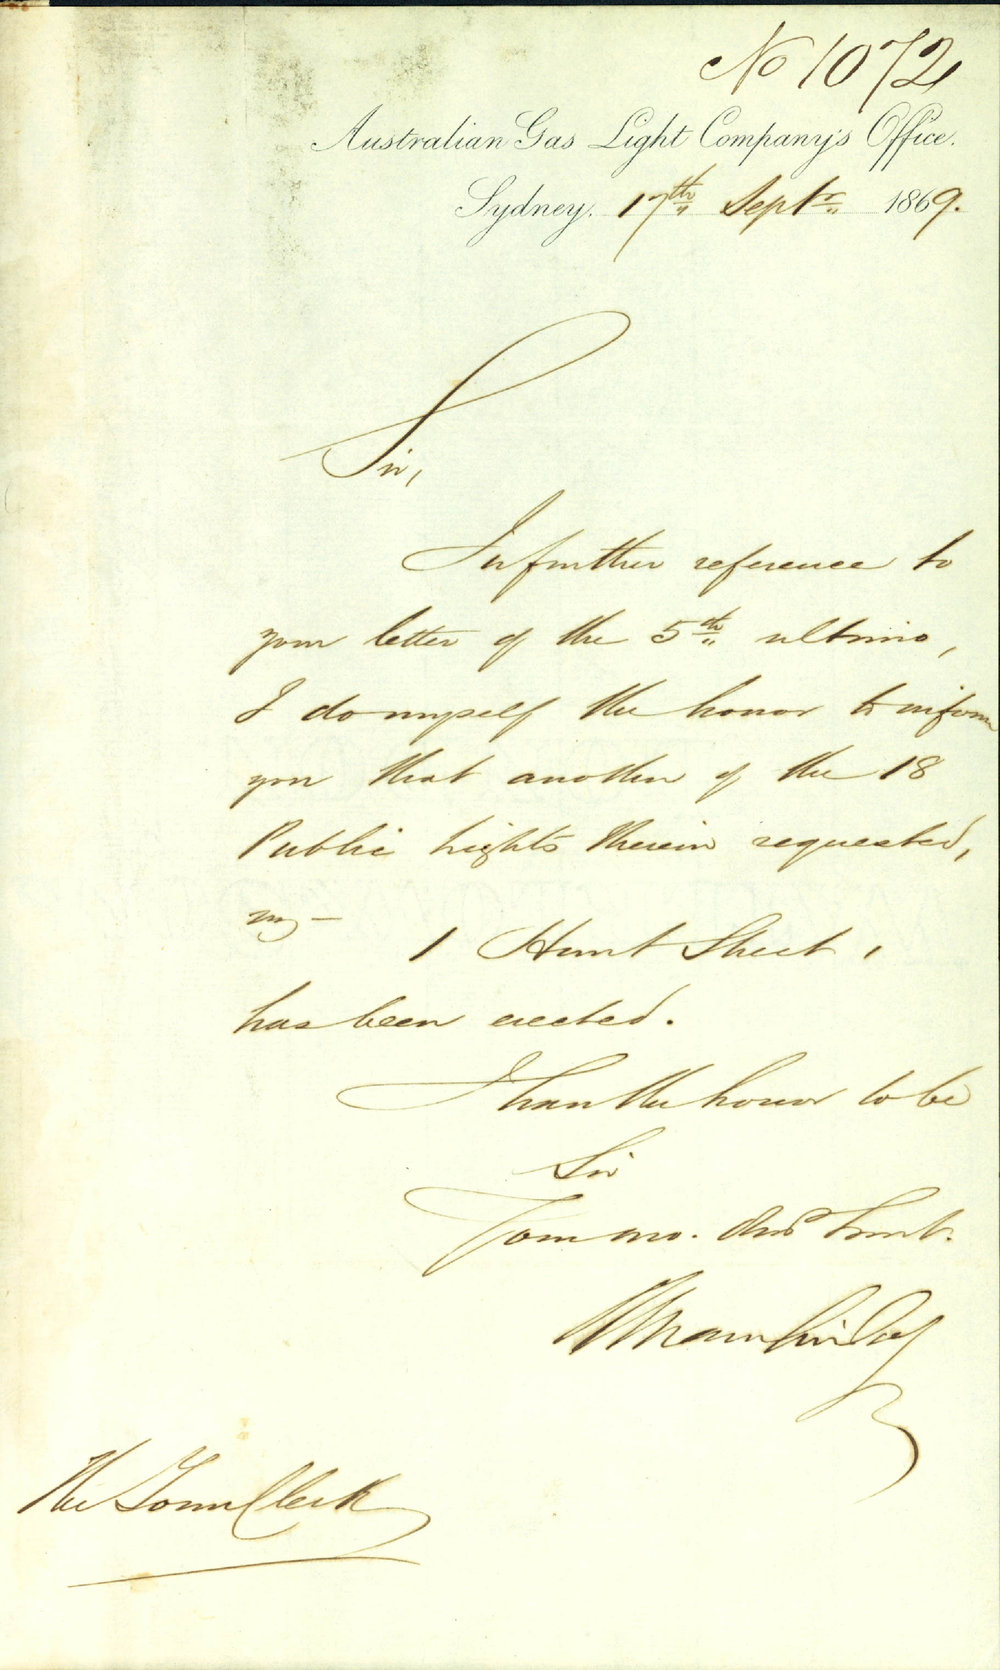 No 1072
Australian Gas Light Company's Office.
Sydney. 17th Septr 1869.
Sir,
In further reference to
your letter of the 5th ultimo,
I do myself the honor to inform
you that another of the 18
Public lights therein requested,
1 Hunt Street,
has been erected.
I have the honor to be
Sir
Your mo. Obed Servt.
The Town Clerk